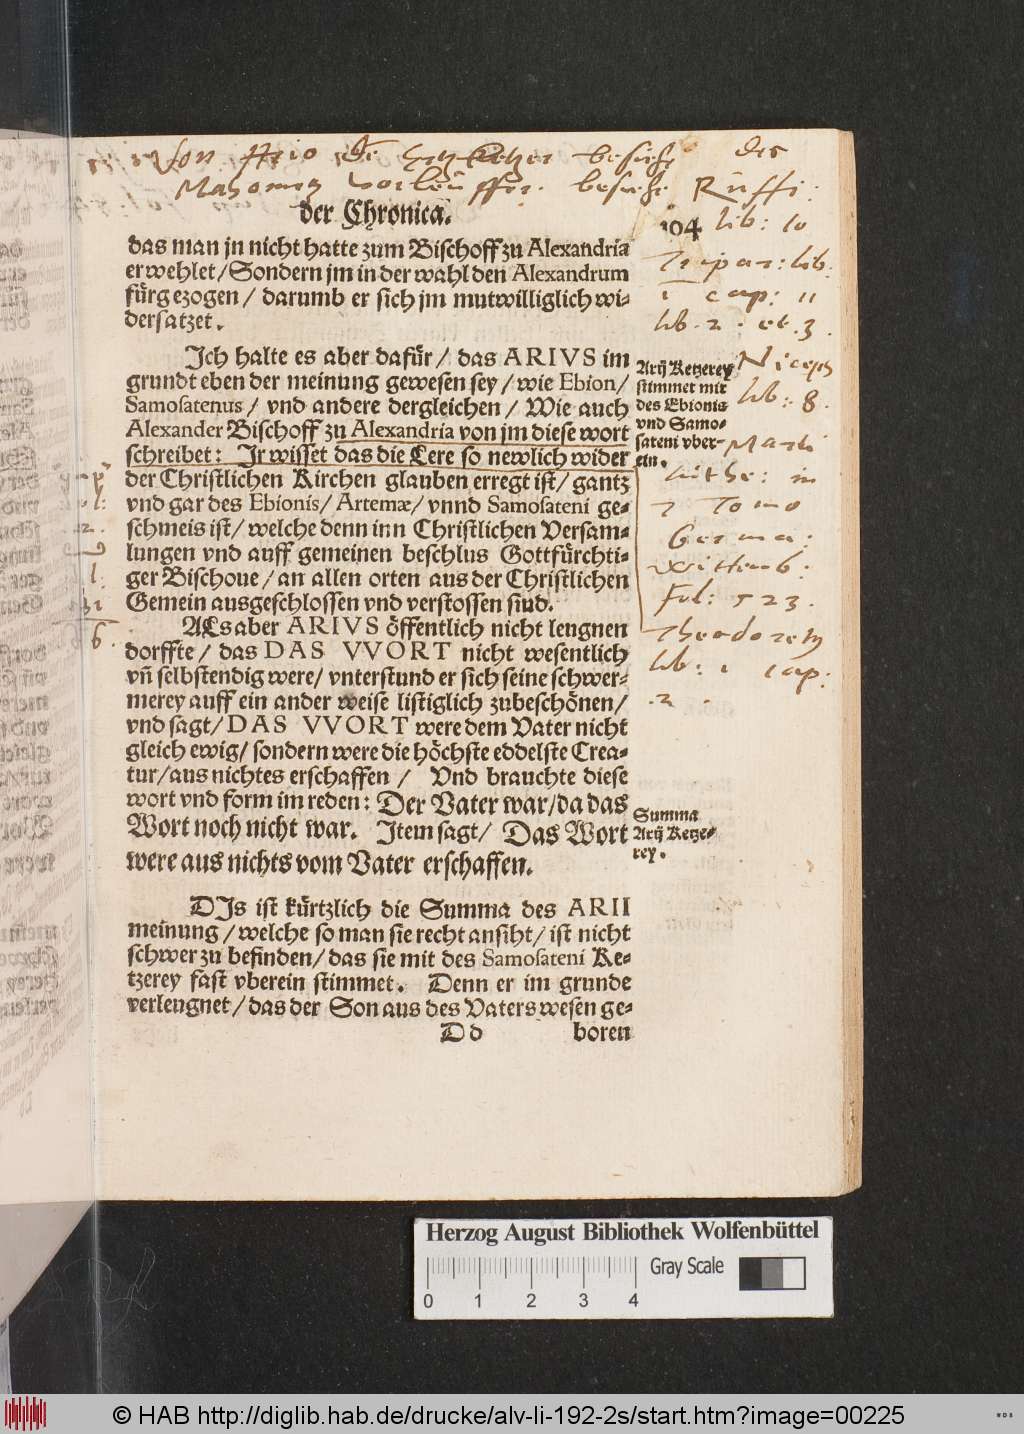 Von Arrio de Ertzketzer besiehe des
Mahometz vorleuffer. besiehe Ruffi:
der Chronica.
104
lib: 10
Tripar: lib.
1 cap: 11
lib. 2. et. 3.
das man jn nicht hatte zum Bischoff zu Alexandria
erwehlet/Sondern jm in der wahl den Alexandrum
fürgezogen/ darumb er sich jm mutwilliglich wi-
dersatzet.
Ich halte es aber dafür/ das ARIVS im
grundt eben der meinung gewesen sey/wie Ebion/
Samosatenus/ vnd andere dergleichen/ Wie auch
Alexander Bischoff zu Alexandria von jm diese wort
schreibet: Jr wisset das die Lere so newlich wider
der Christlichen Kirchen glauben erregt ist/ gantz
vnd gar des Ebionis/Artemæ/ vnnd Samosateni ge-
schmeis ist/welche denn inn Christlichen Versam-
lungen vnd auff gemeinen beschlus Gottfürchti-
ger Bischoue/an allen orten aus der Christlichen
Gemein ausgeschlossen vnd verstossen sind.
Arij Ketzerey
stimmet mit
des Ebionis
vnd Samo-
sateni vber-
ein.
Niceph
lib: 8.
Marti
Luthe: in
7 Tomo
Germa:
Wittemb:
Fol: 523.
Theodoretz
lib: 1 cap:
2.
ALs aber ARIVS öffentlich nicht leugnen
dorffte/ das DAS VVORT nicht wesentlich
vñ selbstendig were/ vnterstund er sich seine schwer-
merey auff ein ander weise listiglich zubeschönen/
vnd sagt/DAS VVORT were dem Vater nicht
gleich ewig/ sondern were die höchste eddelste Crea-
tur/aus nichtes erschaffen/ Vnd brauchte diese
wort vnd form im reden: Der Vater war/da das
Wort noch nicht war. Item sagt/ Das Wort
were aus nichts vom Vater erschaffen.
Summa
Arij Ketze-
rey.
DIs ist kürtzlich die Summa des ARII
meinung/welche so man sie recht ansiht/ ist nicht
schwer zu befinden/das sie mit des Samosateni Ke-
tzerey fast vberein stimmet. Denn er im grunde
verleugnet/das der Son aus des Vaters wesen ge-
Dd boren
Herzog August Bibliothek Wolfenbüttel
Gray Scale
0 1 2 3 4
© HAB http://diglib.hab.de/drucke/alv-li-192-2s/start.htm?image=00225